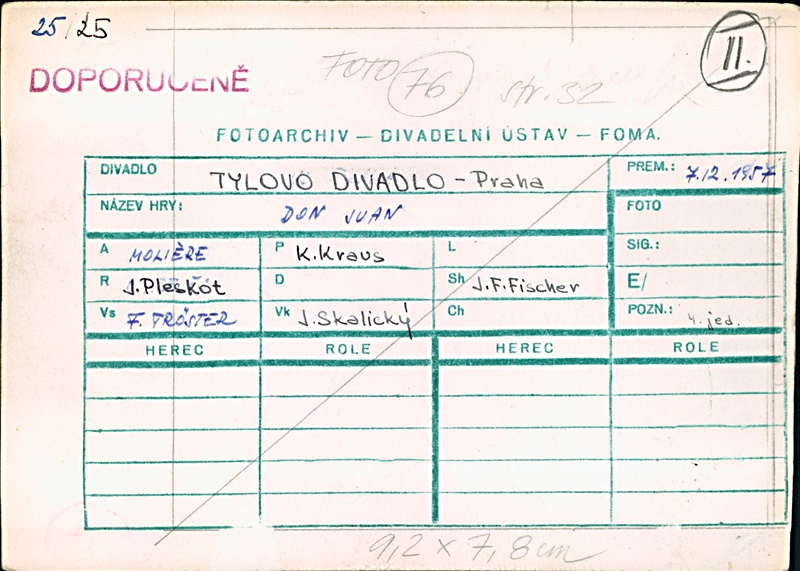 25/25
II.
DOPORUČENĚ
FOTO 76 str. 32
FOTOARCHIV — DIVADELNÍ ÚSTAV — FOMA.
DIVADLO TYLOVO DIVADLO - Praha PREM.: 7.12.1957
NÁZEV HRY: DON JUAN FOTO
A MOLIÈRE P K. Kraus L SIG.:
R J. Pleskot D Sh J.F. Fischer E/
Vs F. TRÖSTER Vk J. Skalický Ch POZN.: 4. jed.
HEREC ROLE HEREC ROLE
9,2 x 7,8 cm